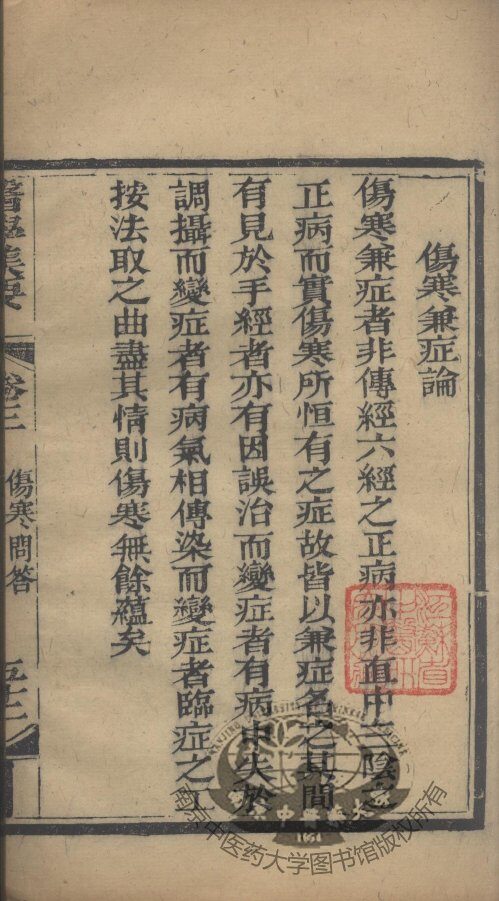 傷寒兼症論
傷寒兼症者非傳經六經之正病亦非直中三陰之
正病而實傷寒所恒有之症故皆以兼症名之其間
有見於手經者亦有因誤治而變症者有病中失於
調攝而變症者有病氣相傳染而變症者臨症之工
按法取之曲盡其情則傷寒無餘蘊矣
卷三
傷寒問答
南京中医药大学图书馆版权所有